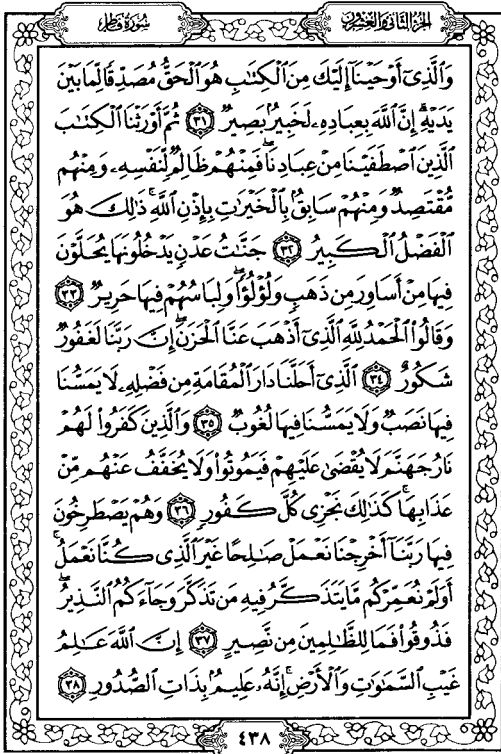 سورة فاطر
الجزء الثاني والعشرون
وَٱلَّذِىٓ أَوْحَيْنَآ إِلَيْكَ مِنَ ٱلْكِتَٰبِ هُوَ ٱلْحَقُّ مُصَدِّقًا لِّمَا بَيْنَ
يَدَيْهِ ۗ إِنَّ ٱللَّهَ بِعِبَادِهِۦ لَخَبِيرٌۢ بَصِيرٌ ٣١ ثُمَّ أَوْرَثْنَا ٱلْكِتَٰبَ
ٱلَّذِينَ ٱصْطَفَيْنَا مِنْ عِبَادِنَا ۖ فَمِنْهُمْ ظَالِمٌ لِّنَفْسِهِۦ وَمِنْهُم
مُّقْتَصِدٌ وَمِنْهُمْ سَابِقٌۢ بِٱلْخَيْرَٰتِ بِإِذْنِ ٱللَّهِ ۚ ذَٰلِكَ هُوَ
ٱلْفَضْلُ ٱلْكَبِيرُ ٣٢ جَنَّٰتُ عَدْنٍ يَدْخُلُونَهَا يُحَلَّوْنَ
فِيهَا مِنْ أَسَاوِرَ مِن ذَهَبٍ وَلُؤْلُؤًا ۖ وَلِبَاسُهُمْ فِيهَا حَرِيرٌ ٣٣
وَقَالُوا۟ ٱلْحَمْدُ لِلَّهِ ٱلَّذِىٓ أَذْهَبَ عَنَّا ٱلْحَزَنَ ۖ إِنَّ رَبَّنَا لَغَفُورٌ
شَكُورٌ ٣٤ ٱلَّذِىٓ أَحَلَّنَا دَارَ ٱلْمُقَامَةِ مِن فَضْلِهِۦ لَا يَمَسُّنَا
فِيهَا نَصَبٌ وَلَا يَمَسُّنَا فِيهَا لُغُوبٌ ٣٥ وَٱلَّذِينَ كَفَرُوا۟ لَهُمْ
نَارُ جَهَنَّمَ لَا يُقْضَىٰ عَلَيْهِمْ فَيَمُوتُوا۟ وَلَا يُخَفَّفُ عَنْهُم مِّنْ
عَذَابِهَا ۚ كَذَٰلِكَ نَجْزِى كُلَّ كَفُورٍ ٣٦ وَهُمْ يَصْطَرِخُونَ
فِيهَا رَبَّنَآ أَخْرِجْنَا نَعْمَلْ صَٰلِحًا غَيْرَ ٱلَّذِى كُنَّا نَعْمَلُ ۚ
أَوَلَمْ نُعَمِّرْكُم مَّا يَتَذَكَّرُ فِيهِ مَن تَذَكَّرَ وَجَآءَكُمُ ٱلنَّذِيرُ ۖ
فَذُوقُوا۟ فَمَا لِلظَّٰلِمِينَ مِن نَّصِيرٍ ٣٧ إِنَّ ٱللَّهَ عَٰلِمُ
غَيْبِ ٱلسَّمَٰوَٰتِ وَٱلْأَرْضِ ۚ إِنَّهُۥ عَلِيمٌۢ بِذَاتِ ٱلصُّدُورِ ٣٨
٤٣٨